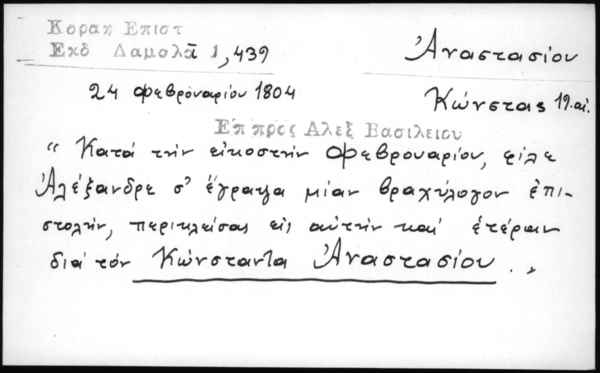 Κοραη Επιστ
Εκδ Δαμολᾶ 1,439
Ἀναστασίου
24 Φεβρουαρίου 1804
Κώνστας 19. αἰ.
Επ προς Αλεξ Βασιλειου
" Κατά τήν εἰκοστήν Φεβρουαρίου, φίλε
Ἀλέξανδρε σ' ἔγραψα μίαν βραχύλογον ἐπι-
στολήν, περικλείσας εἰς αὐτήν καί ἑτέραν
διά τόν Κώνσταντα Ἀναστασίου . „